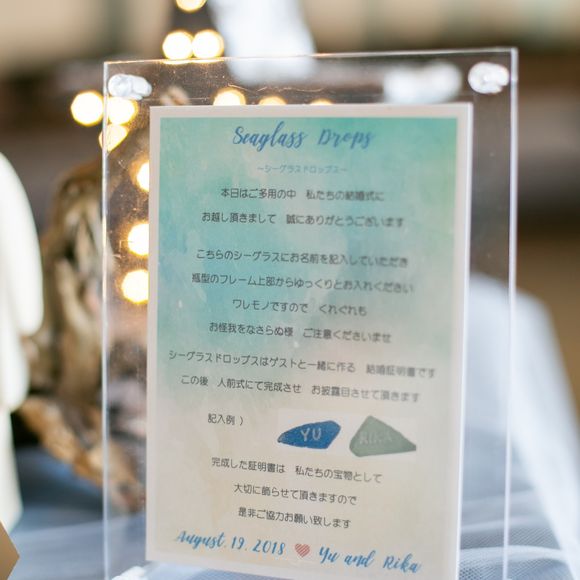 Seaglass Drops
～シーグラスドロップス～
本日はご多用の中　私たちの結婚式に
お越し頂きまして　誠にありがとうございます
こちらのシーグラスにお名前を記入していただき
瓶型のフレーム上部からゆっくりとお入れください
ワレモノですので　くれぐれも
お怪我をなさらぬ様　ご注意くださいませ
シーグラスドロップスはゲストと一緒に作る　結婚証明書です
この後　人前式にて完成させ　お披露目させて頂きます
記入例 ）
YU RIKA
完成した証明書は　私たちの宝物として
大切に飾らせて頂きますので
是非ご協力お願い致します
August. 19. 2018 Yu and Rika